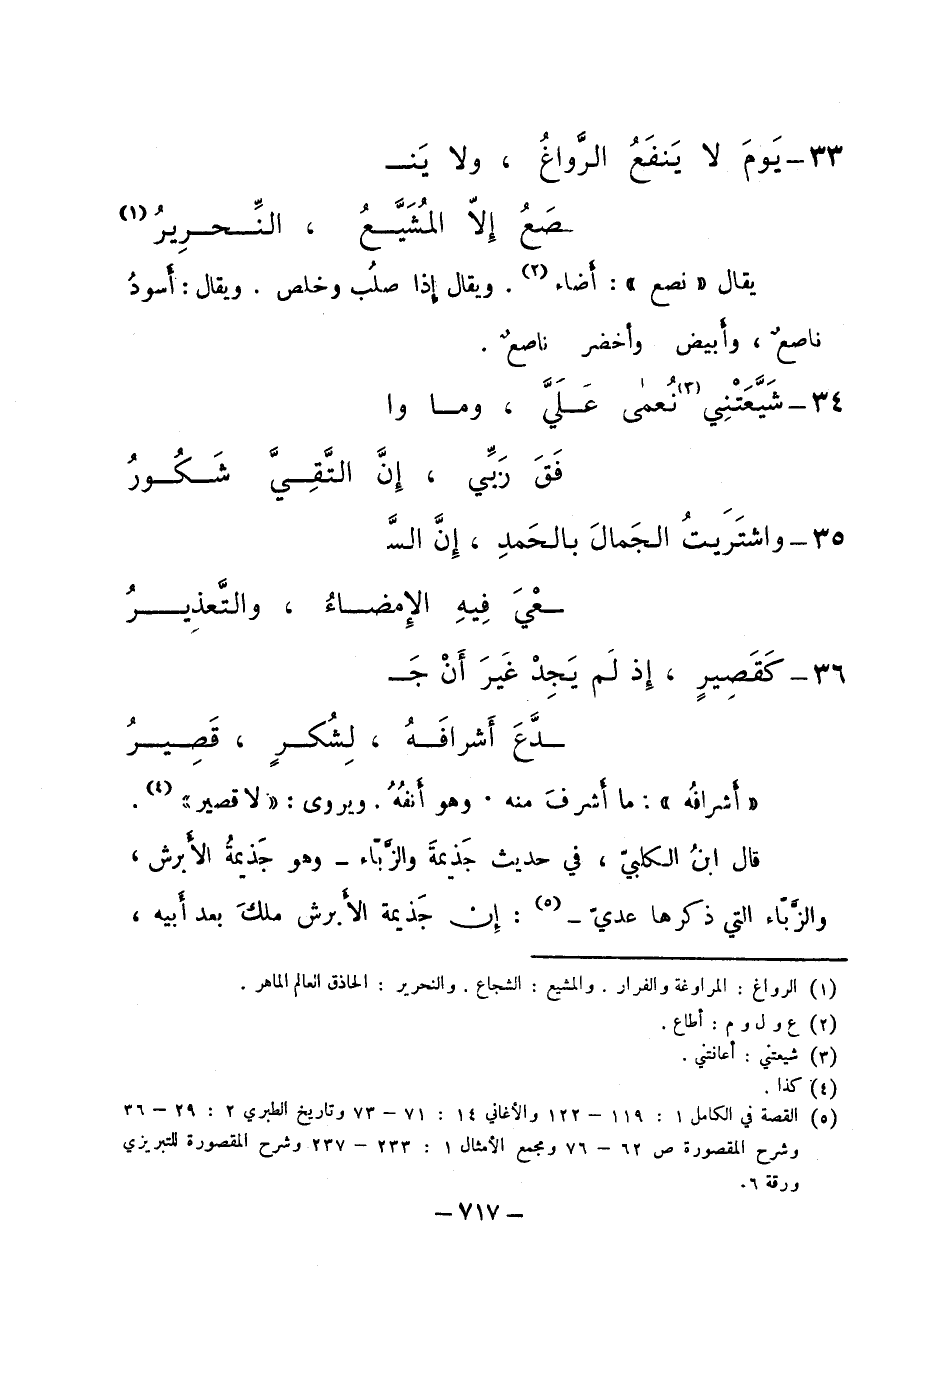 ٣٣ــ يَومَ لا يَنفَعُ الرَّواغُ ، ولا يَنــ
ــصَعُ إِلاّ المُشَيَّــعُ ، النِّــحــرِيرُ (١)
يقال « نصع » : أَضاء (٢) . ويقال إِذا صلُب وخلص . ويقال : أَسودُ
ناصعٌ ، وأَبيض وأخضر ناصعٌ .
٣٤ــ شَيَّعَتْنِي (٣) نُعمٰى عَــلَيَّ ، ومــا وا
فَقَ رَبِّي ، إِنَّ التَّقِــيَّ شَــكُــورُ
٣٥ــ واشتَرَيتُ الجَمالَ بالحَمدِ ، إِنَّ السَّ
ــعْيَ فِيهِ الإِمضــاءُ ، والتَّعذِيــرُ
٣٦ــ كَقَصِيرٍ ، إِذ لَم يَجِدْ غَيرَ أَنْ جَــ
ــدَّعَ أَشرافَــهُ ، لِشُكــرٍ ، قَصِيــرُ
« أَشرافُه » : ما أَشرفَ منه . وهو أَنفُهُ . ويروى : « لا قصير » (٤) .
قال ابنُ الكلبيّ ، في حديث جَذيمةَ والزَّبّاء ــ وهو جَذيمةُ الأَبرش ،
والزَّبّاء التي ذكرها عديّ ــ (٥) : إِن جَذيمة الأَبرش ملكَ بعد أَبيه ،
(١) الرواغ : المراوغة والفرار . والمشيع : الشجاع . والنحرير : الحاذق العالم الماهر .
(٢) ع و ل و م : أطاع .
(٣) شيعتني : أعانتني .
(٤) كذا .
(٥) القصة في الكامل ١ : ١١٩ – ١٢٢ والأغاني ١٤ : ٧١ – ٧٣ وتاريخ الطبري ٢ : ٢٩ – ٣٦
وشرح المقصورة ص ٦٢ – ٧٦ ومجمع الأمثال ١ : ٢٣٣ – ٢٣٧ وشرح المقصورة للتبريزي
ورقة ٦.
– ٧١٧ –